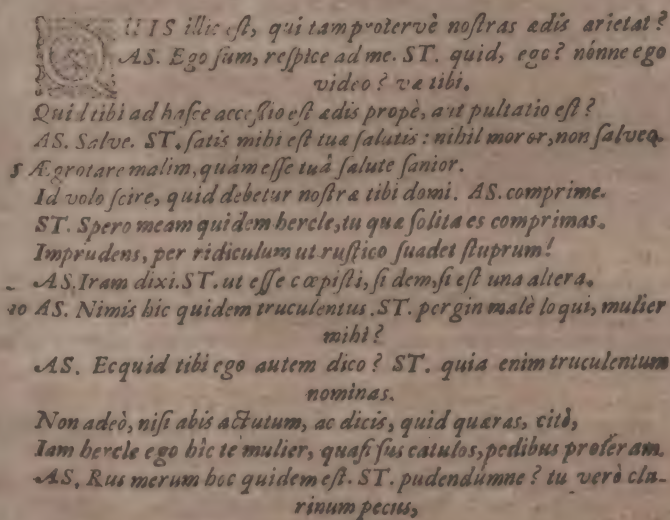 QUIS illic eſt, qui tam protervè noſtras ædis arietat?
AS. Ego ſum, reſpice ad me. ST. quid, ego? nónne ego
video? væ tibi.
Quid tibi ad haſce acceſſio eſt ædis propè, aut pultatio eſt?
AS. Salve. ST. ſatis mihi eſt tuæ ſalutis: nihil moror, non ſalveo.
5 Ægrotare malim, quàm eſſe tuâ ſalute ſanior.
Id volo ſcire, quid debetur noſtræ tibi domi. AS. comprime.
ST. Spero meam quidem hercle, tu quæ ſolita es comprimas.
Imprudens, per ridiculum ut ruſtico ſuadet ſtuprum!
AS. Iram dixi. ST. ut eſſe cœpiſti, ſi dem, ſi eſt una altera.
10 AS. Nimis hic quidem truculentus. ST. pergin malè loqui, mulier
mihi?
AS. Ecquid tibi ego autem dico? ST. quia enim truculentum
nominas.
Non adeò, niſi abis actutum, ac dicis, quid quæras, citò,
Iam hercle ego hîc te mulier, quaſi ſus catulos, pedibus proferam.
AS. Rus merum hoc quidem eſt. ST. pudendúmne? tu verò cla-
rinum pecus,